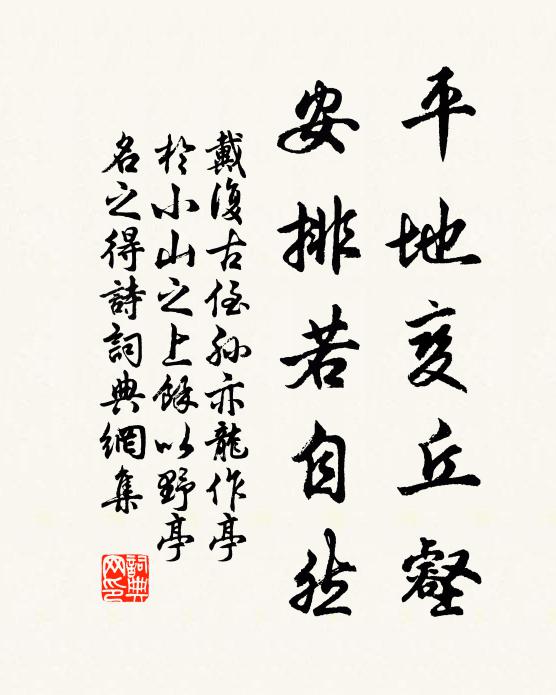 平地变丘壑
安排若自然
戴復古侄孙亦龍作亭
於小山之上餘以野亭
名之得詩詞典網集
詞典网印